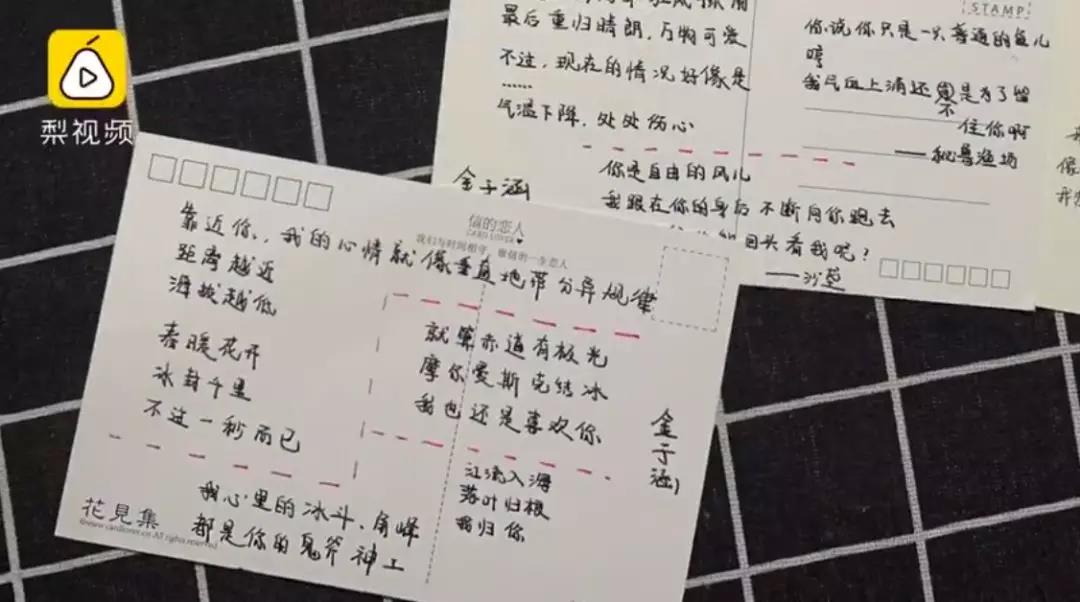 梨视频
最后重归晴朗，万物可爱
不过，现在的情况好像是
……
气温下降，处处伤心
金子涵
STAMP
你说你只是一只普通的鱼儿
哼
我气血上涌还不是为了留
住你啊
——秘鲁渔场
你是自由的风儿
我跟在你的身后不断向你跑去
回头看我呢？
——沙丘
信的恋人
CARD LOVER
我们与时间相守，做信的一生恋人
靠近你，我的心情就像垂直地带分异规律
距离越近
海拔越低
春暖花开
冰封千里
不过一秒而已
就算赤道有极光
摩尔曼斯克结冰
我也还是喜欢你
金子涵
江流入海
落叶归根
我归你
我心里的冰斗、角峰
都是你的鬼斧神工
花見集
©www.cardlover.cn All rights reserved